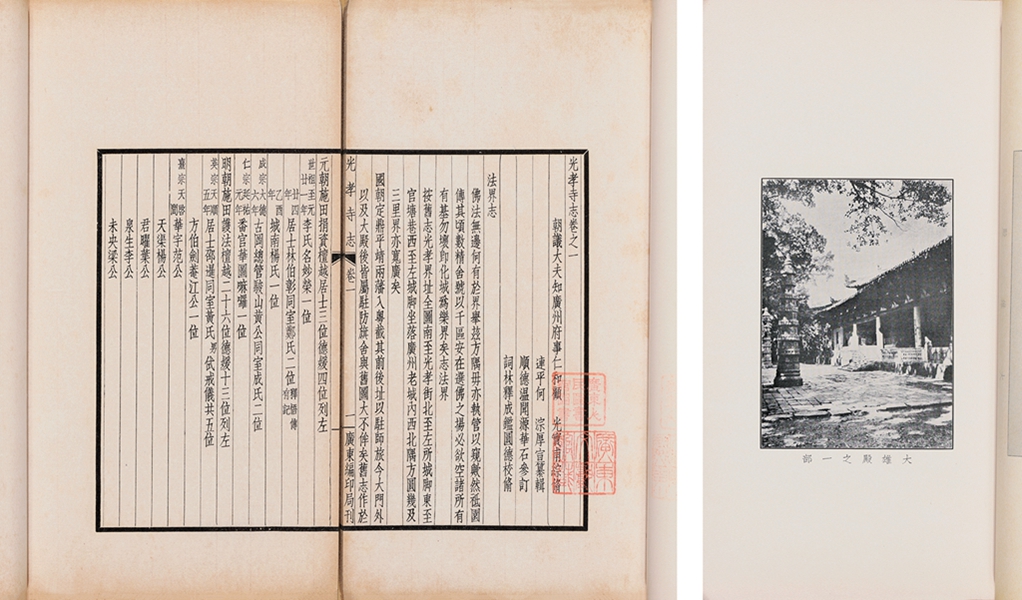 光孝寺志卷之一
朝議大夫知廣州府事仁和顧　光實甫綜脩
連平何　淙厚宣纂輯
順德温聞源華石參訂
詞林釋成鑑圓德校脩
法界志
佛法無邊何有於界舉茲方隅毋亦執管以窺歟然祇園
傳其頃數精舍號以千區安在選佛之場必欲空諸所有
有基勿壞即化城爲樂界矣志法界
按舊志光孝界址全圖南至光孝街北至左所城脚東至
官塘巷西至左城脚坐落廣州老城內西北隅方圓幾及
三里界亦寬廣矣
國朝定鼎平靖兩藩入粵截其前後址以駐師旅今大門外
以及大殿後皆屬駐防旗舍與舊圖大不侔矣舊志作於
光孝寺志
卷一
一
廣東編印局刊
元朝施田捐資檀越居士三位德緩四位列左
世祖至元廿一年李氏名妙榮一位
廿四年居士林伯彰同室鄭氏二位
乙酉年城南楊氏一位
成宗大德六年古岡總管陵山黃公同室
氏二位
仁宗延祐元年番官華圖嘛囉一位
明朝施田護法檀越二十六位德緩十三位列左
英宗天順五年居士邵暹同室黃氏男
戒儀共五位
方伯劍菴江公一位
熹宗天啓間華宇范公
天渠楊公
君曜葉公
泉生李公
未央梁公
大雄殿之一部